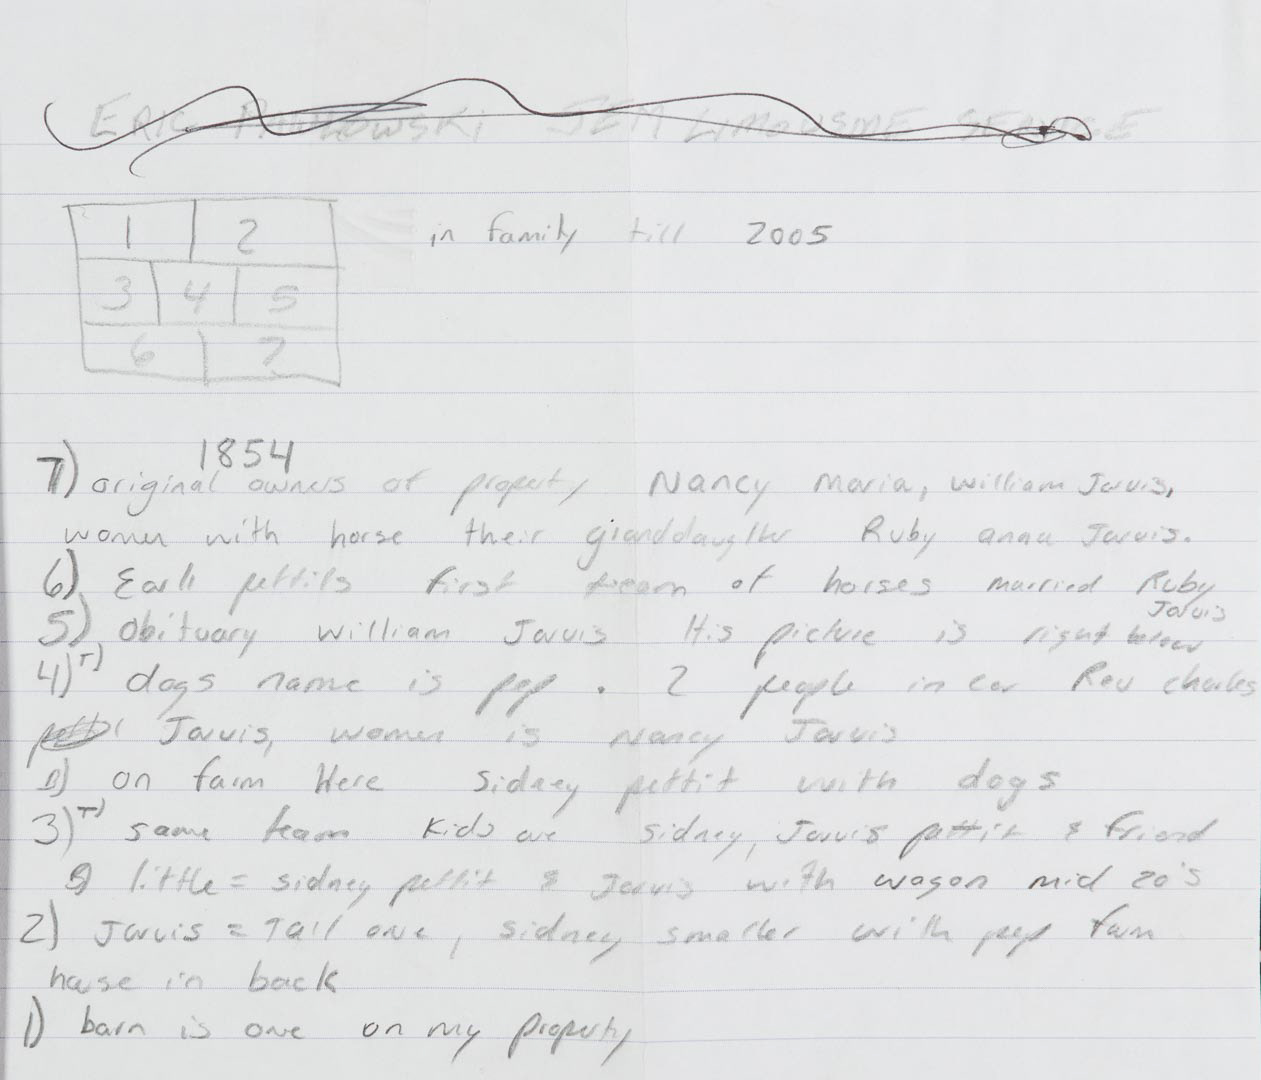 ERIC JEM LIMOUSINE SERVICE
1 2
in family till 2005
3 4 5
6 7
1854
7) original owners of property Nancy Maria, William Jarvis,
women with horse their granddaughter Ruby anna Jarvis.
6) Earl pettits first team of horses married Ruby
Jarvis
5) Obituary William Jarvis His picture is right below
4) T) dogs name is pep. 2 people in car Rev charles
Jarvis, women is Nancy Jarvis
B) on farm Here Sidney pettit with dogs
3) T) same team Kids are sidney, Jarvis pettit & friend
B) little = sidney pettit & Jarvis with wagon mid 20's
2) Jarvis = Tall one, sidney smaller with pep farm
house in back
1) barn is one on my property